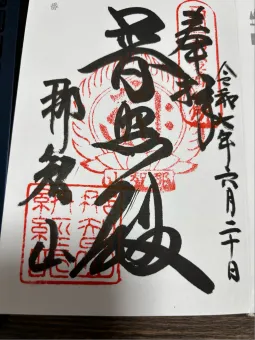 令和七年六月二十日
奉拝
普照殿
那智山